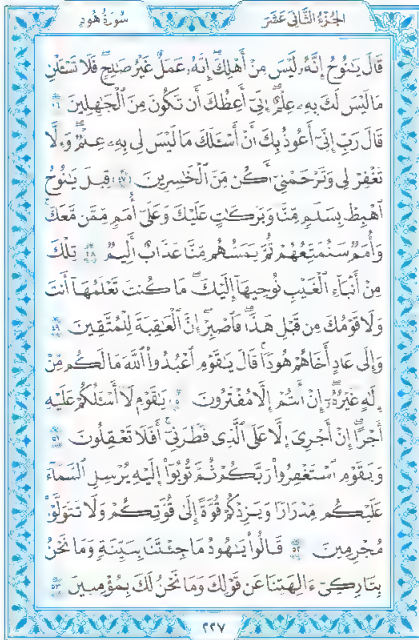 الجزء الثاني عشر
سورة هود
قَالَ يَٰنُوحُ إِنَّهُۥ لَيْسَ مِنْ أَهْلِكَ ۖ إِنَّهُۥ عَمَلٌ غَيْرُ صَٰلِحٍ ۖ فَلَا تَسْـَٔلْنِ
مَا لَيْسَ لَكَ بِهِۦ عِلْمٌ ۖ إِنِّىٓ أَعِظُكَ أَن تَكُونَ مِنَ ٱلْجَٰهِلِينَ ٤٦
قَالَ رَبِّ إِنِّىٓ أَعُوذُ بِكَ أَنْ أَسْـَٔلَكَ مَا لَيْسَ لِى بِهِۦ عِلْمٌ ۖ وَإِلَّا
تَغْفِرْ لِى وَتَرْحَمْنِىٓ أَكُن مِّنَ ٱلْخَٰسِرِينَ ٤٧ قِيلَ يَٰنُوحُ
ٱهْبِطْ بِسَلَٰمٍ مِّنَّا وَبَرَكَٰتٍ عَلَيْكَ وَعَلَىٰٓ أُمَمٍ مِّمَّن مَّعَكَ ۚ
وَأُمَمٌ سَنُمَتِّعُهُمْ ثُمَّ يَمَسُّهُم مِّنَّا عَذَابٌ أَلِيمٌ ٤٨ تِلْكَ
مِنْ أَنۢبَآءِ ٱلْغَيْبِ نُوحِيهَآ إِلَيْكَ ۖ مَا كُنتَ تَعْلَمُهَآ أَنتَ
وَلَا قَوْمُكَ مِن قَبْلِ هَٰذَا ۖ فَٱصْبِرْ ۖ إِنَّ ٱلْعَٰقِبَةَ لِلْمُتَّقِينَ ٤٩
وَإِلَىٰ عَادٍ أَخَاهُمْ هُودًا ۚ قَالَ يَٰقَوْمِ ٱعْبُدُوا۟ ٱللَّهَ مَا لَكُم مِّنْ
إِلَٰهٍ غَيْرُهُۥٓ ۖ إِنْ أَنتُمْ إِلَّا مُفْتَرُونَ ٥٠ يَٰقَوْمِ لَآ أَسْـَٔلُكُمْ عَلَيْهِ
أَجْرًا ۖ إِنْ أَجْرِىَ إِلَّا عَلَى ٱلَّذِى فَطَرَنِىٓ ۚ أَفَلَا تَعْقِلُونَ ٥١
وَيَٰقَوْمِ ٱسْتَغْفِرُوا۟ رَبَّكُمْ ثُمَّ تُوبُوٓا۟ إِلَيْهِ يُرْسِلِ ٱلسَّمَآءَ
عَلَيْكُم مِّدْرَارًا وَيَزِدْكُمْ قُوَّةً إِلَىٰ قُوَّتِكُمْ وَلَا تَتَوَلَّوْا۟
مُجْرِمِينَ ٥٢ قَالُوا۟ يَٰهُودُ مَا جِئْتَنَا بِبَيِّنَةٍ وَمَا نَحْنُ
بِتَارِكِىٓ ءَالِهَتِنَا عَن قَوْلِكَ وَمَا نَحْنُ لَكَ بِمُؤْمِنِينَ ٥٣
٢٢٧